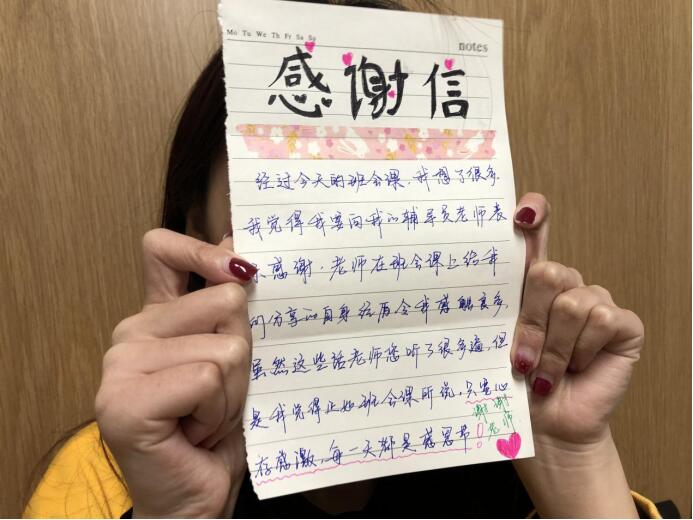 Mo Tu We Th Fr Sa Su
notes
感谢信
经过今天的班会课,我想了很多,
我觉得我要向我的辅导员老师表
示感谢,老师在班会课上给我
们分享的自身经历令我感触良多,
虽然这些话老师您听了很多遍,但
是我觉得正如班会课所说,只要心
存感激,每一天都是感恩节!
谢谢
老师